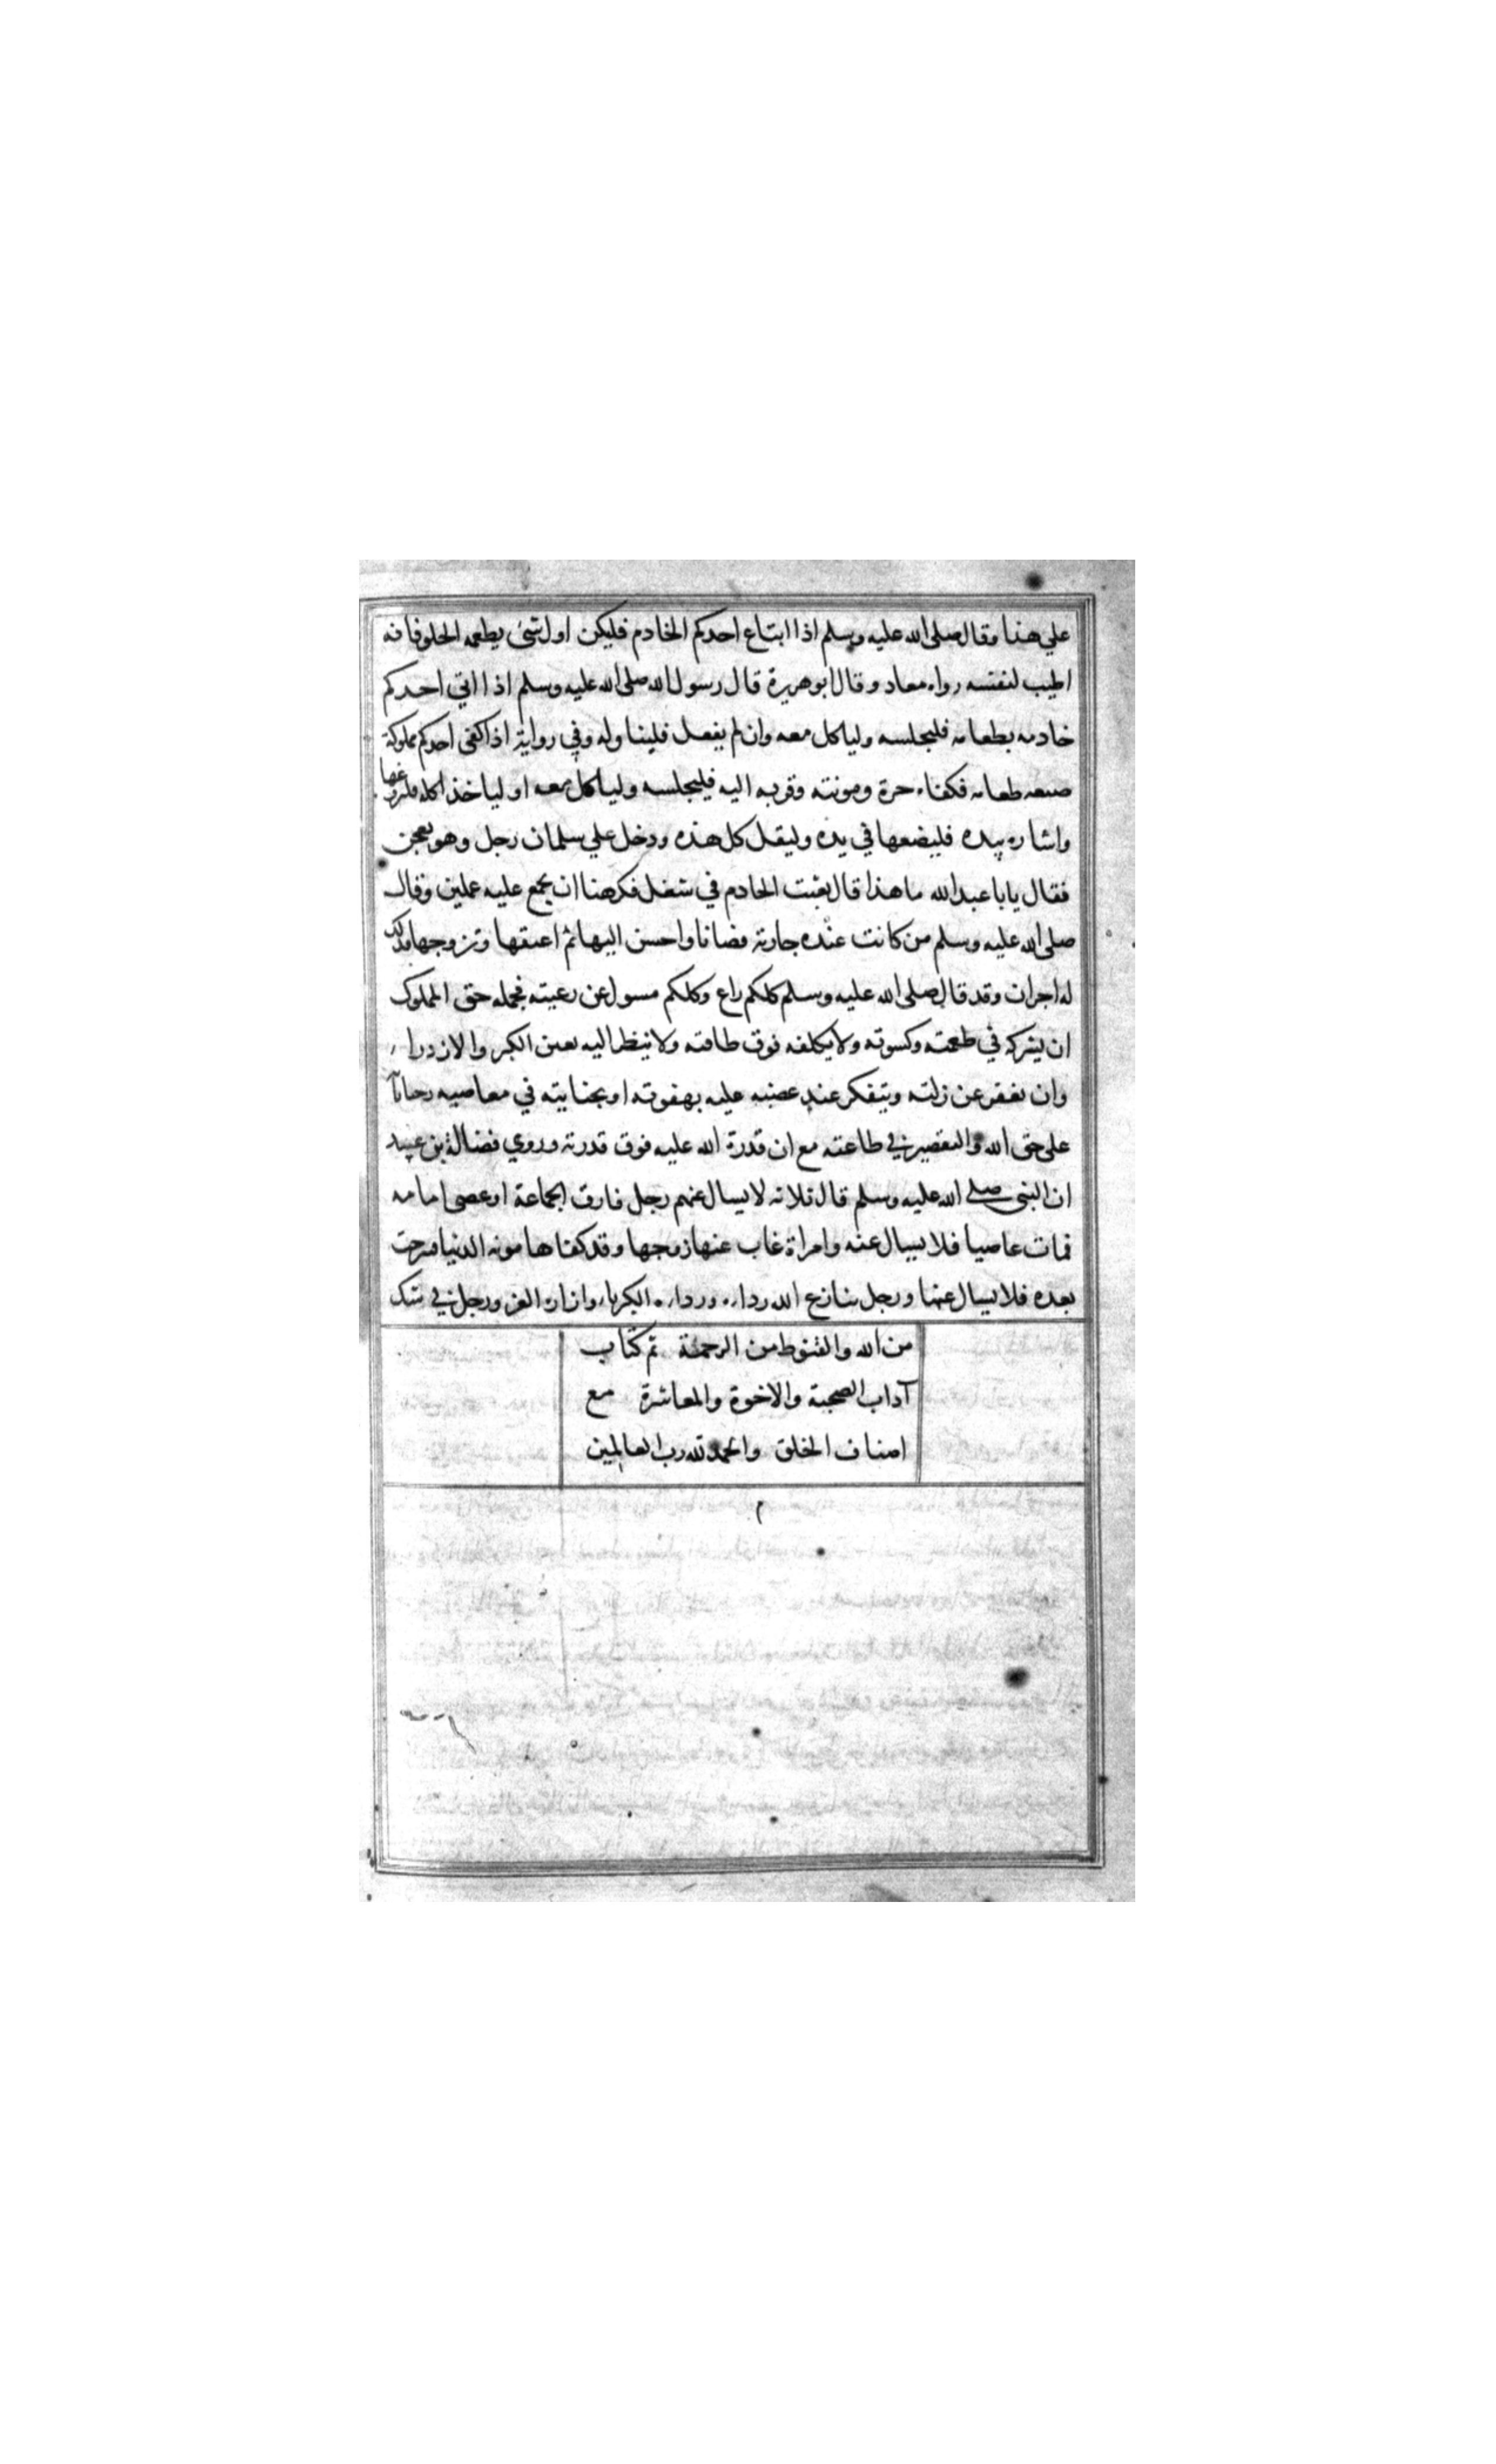 علي هنا وقال صلى الله عليه وسلم اذا ابتاع احدكم الخادم فليكن اول شئ يطعمه الحلو فانه
اطيب لنفسه رواه معاد وقال ابو هريرة قال رسول الله صلى الله عليه وسلم اذا اتي احدكم
خادمه بطعامه فليجلسه ولياكل معه وان لم يفعل فليناوله وفي رواية اذا كفى احدكم مملوكه
صنعه طعامه فكفاه حرة ومونته وقربه اليه فليجلسه ولياكل معه او لياخذ اكله فليروغها
واشار بيده فليضعها في يده وليقل كل هذه ودخل علي سلمان رجل وهو يعجن
فقال يابا عبد الله ما هذا قال بعثت الخادم في شغل فكرهنا ان نجمع عليه عملين وقال
صلى الله عليه وسلم من كانت عنده جارية فصانا واحسن اليها ثم اعتقها وتزوجها فذلك
له اجران وقد قال صلى الله عليه وسلم كلكم راع وكلكم مسول عن رعيته فجمله حق المملوك
ان يشركه في طعمته وكسوته ولا يكلفه فوق طاقته ولا ينظر اليه بعين الكبر والازدراء
وان يعفو عن زلته ويتفكر عند غضبه عليه بهفوته او بجنايته في معاصيه
على حق الله والتقصير في طاعته مع ان قدرة الله عليه فوق قدرته وروي فضالة بن عبيد
ان النبي صلى الله عليه وسلم قال ثلاثه لا يسال عنهم رجل فارق الجماعة او عصى امامه
فمات عاصيا فلا يسال عنه وامراة غاب عنها زوجها وقد كفاها مونه الدنيا فبرجت
بعده فلا يسال عنها ورجل ينازع الله رداه ورداه الكبرياء وازاره العز ورجل في شك
من الله والقنوط من الرحمة تم كتاب
آداب الصحبة والاخوة والمعاشرة مع
اصناف الخلق والحمد لله رب العالمين
م